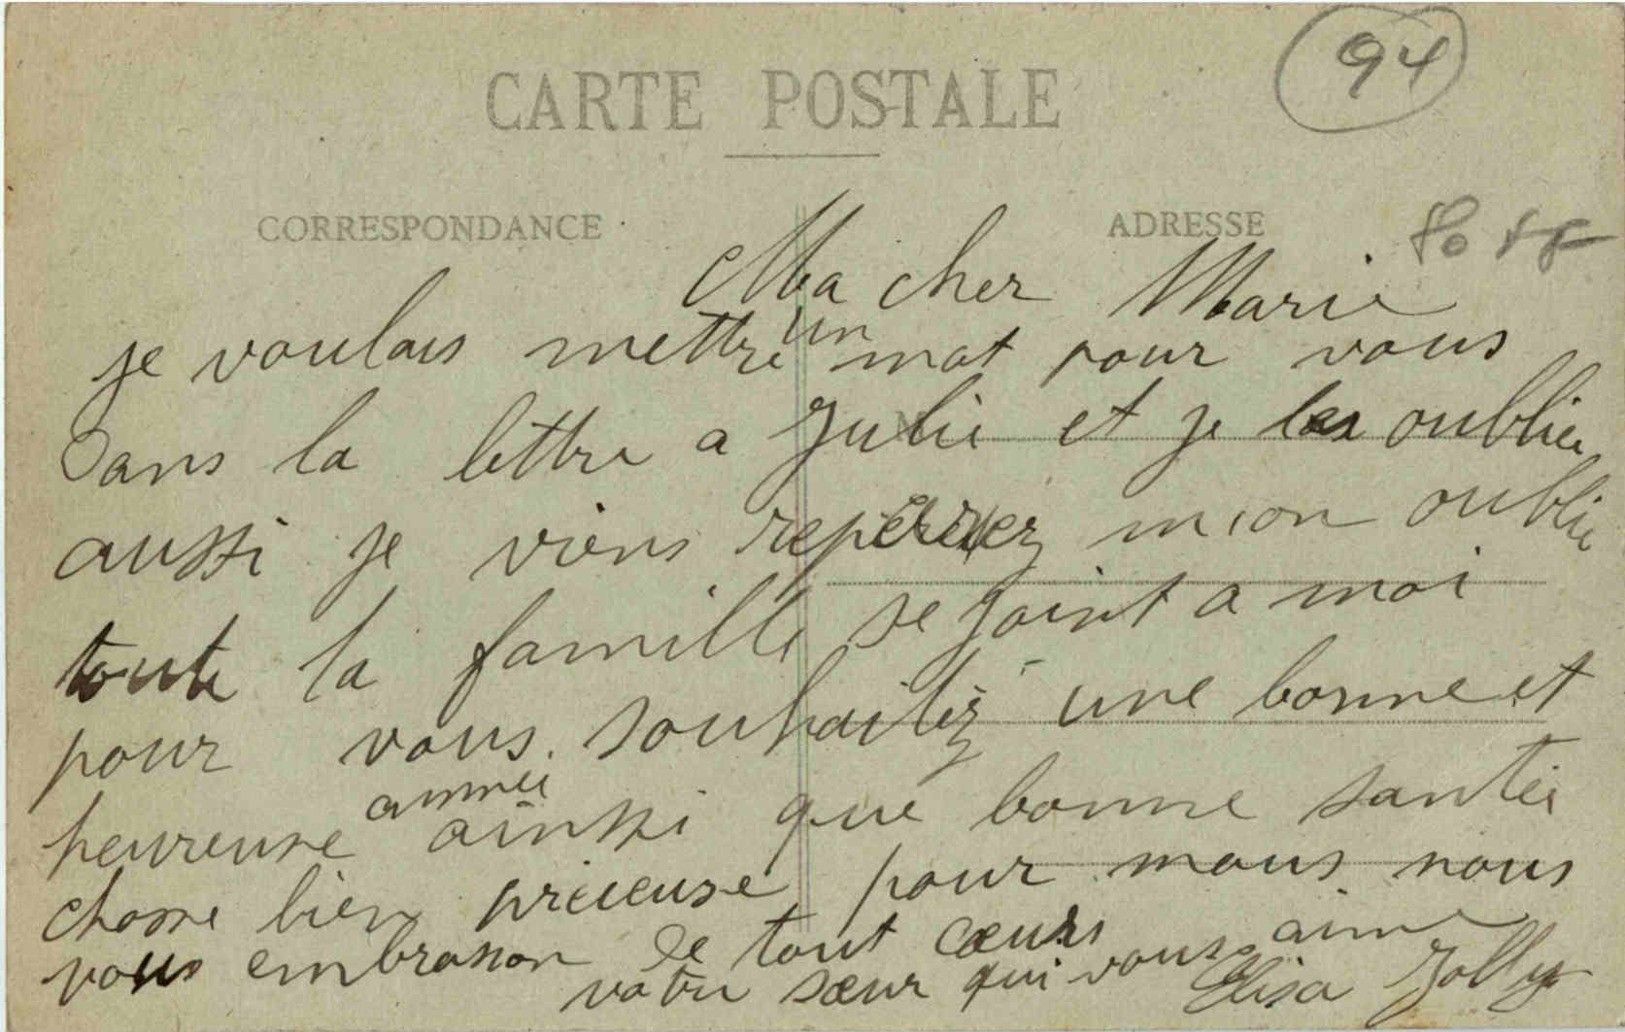 94
CARTE POSTALE
CORRESPONDANCE
ADRESSE
Ma cher Marie
je voulais mettre un mot pour vous
Dans la lettre a Julie et je les oublier
aussi je viens reparer mon oublie
toute la famille se joint a moi
pour vous souhaitez une bonne et
heureuse année ainssi que bonne santée
chosse bien precieuse pour nous nous
vous embrasson de tout cœurs
votre sœur qui vous aime
Elisa Jolly